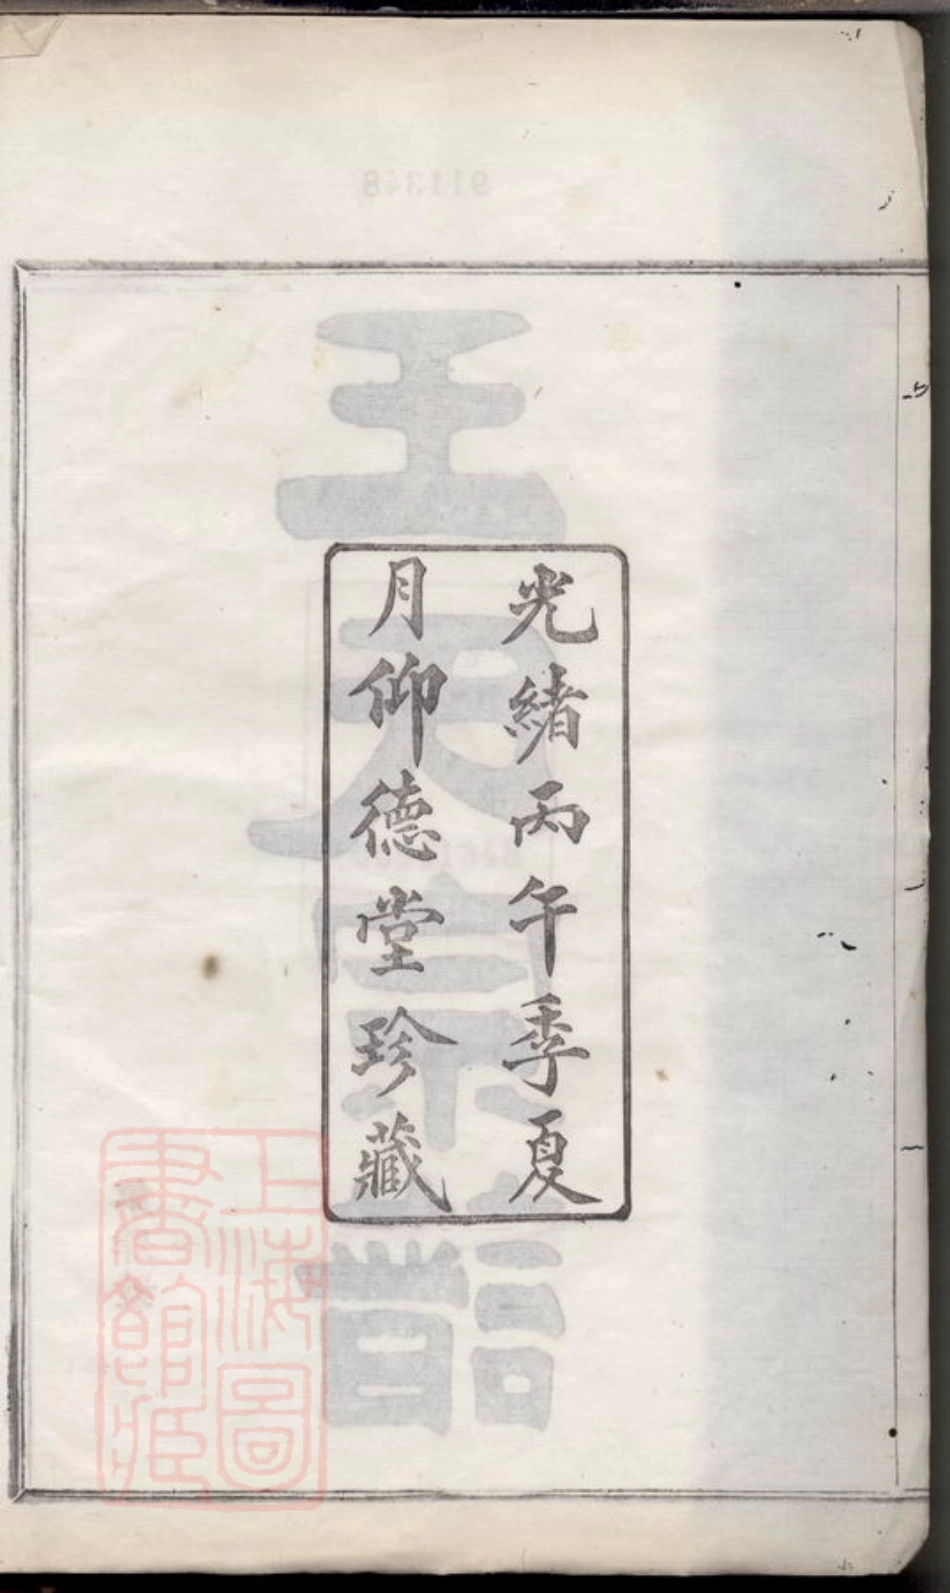 光緒丙午季夏
月仰德堂珍藏
上海圖
書館藏
911348